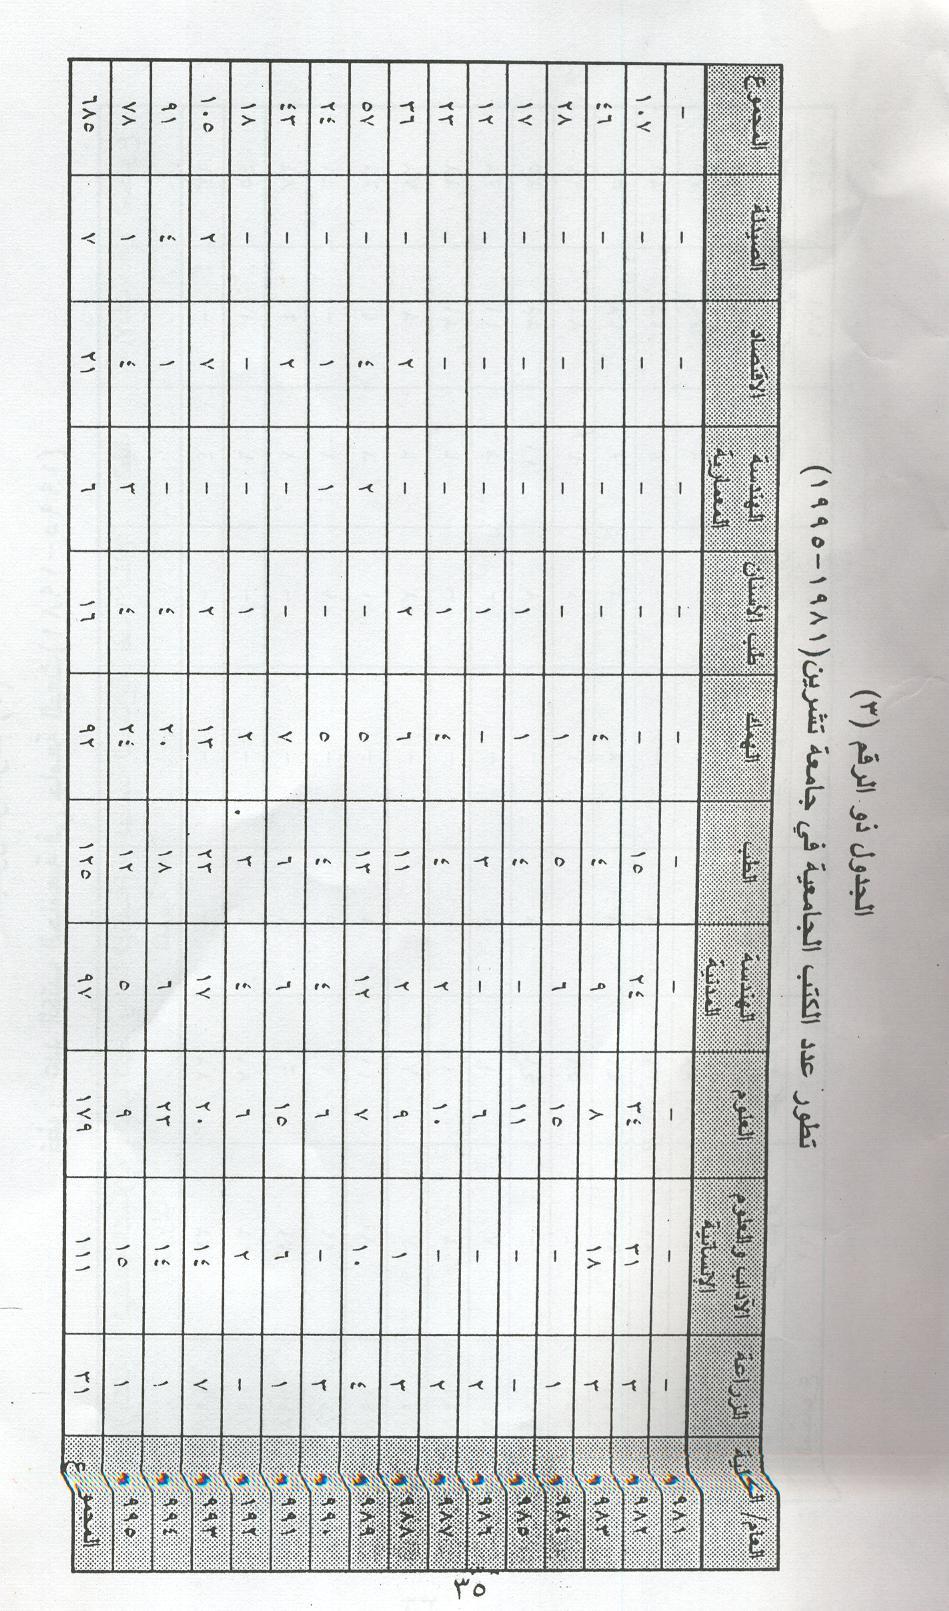 الجدول ذو الرقم (٣)
تطور عدد الكتب الجامعية في جامعة تشرين (١٩٨١-١٩٩٥)
العام/ الكلية الزراعة الآداب والعلوم الإنسانية العلوم الهندسة المدنية الطب الهمك طب الأسنان الهندسة المعمارية الاقتصاد الصيدلة المجموع
٩٨١ - - - - - - - - - - -
٩٨٢ ٣ ٣١ ٣٤ ٢٤ ١٥ - - - - - ١٠٧
٩٨٣ ٣ ١٨ ٨ ٩ ٤ ٤ - - - - ٤٦
٩٨٤ ١ - ١٥ ٦ ٥ ١ - - - - ٢٨
٩٨٥ - - ١١ - ٤ ١ ١ - - - ١٧
٩٨٦ ٢ - ٦ - ٣ - ١ - - - ١٢
٩٨٧ ٢ - ١٠ ٢ ٤ ٤ ١ - - - ٢٣
٩٨٨ ٣ ١ ٩ ٢ ١١ ٦ ٢ - ٢ - ٣٦
٩٨٩ ٤ ١٠ ٧ ١٢ ١٣ ٥ - ٢ ٤ - ٥٧
٩٩٠ ٣ - ٦ ٤ ٤ ٥ - ١ ١ - ٢٤
٩٩١ ١ ٦ ١٥ ٦ ٦ ٧ - - ٢ - ٤٣
٩٩٢ - ٢ ٦ ٤ ٣ ٢ ١ - - - ١٨
٩٩٣ ٧ ١٤ ٢٠ ١٧ ٢٣ ١٣ ٢ - ٧ ٢ ١٠٥
٩٩٤ ١ ١٤ ٢٣ ٦ ١٨ ٢٠ ٤ - ١ ٤ ٩١
٩٩٥ ١ ١٥ ٩ ٥ ١٢ ٢٤ ٤ ٣ ٤ ١ ٧٨
المجموع ٣١ ١١١ ١٧٩ ٩٧ ١٢٥ ٩٢ ١٦ ٦ ٢١ ٧ ٦٨٥
٣٥